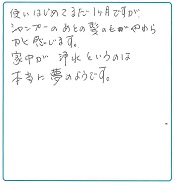 使いはじめてまだ1ヶ月ですが
シャンプーのあとの髪のもがやわら
かと感じます。
家中が浄水というのは
本当に夢のようです。